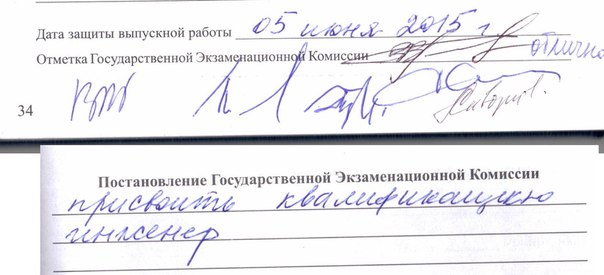 Дата защиты выпускной работы 05 июня 2015 г
Отметка Государственной Экзаменационной Комиссии отлично
34
Постановление Государственной Экзаменационной Комиссии
присвоить квалификацию
инженер